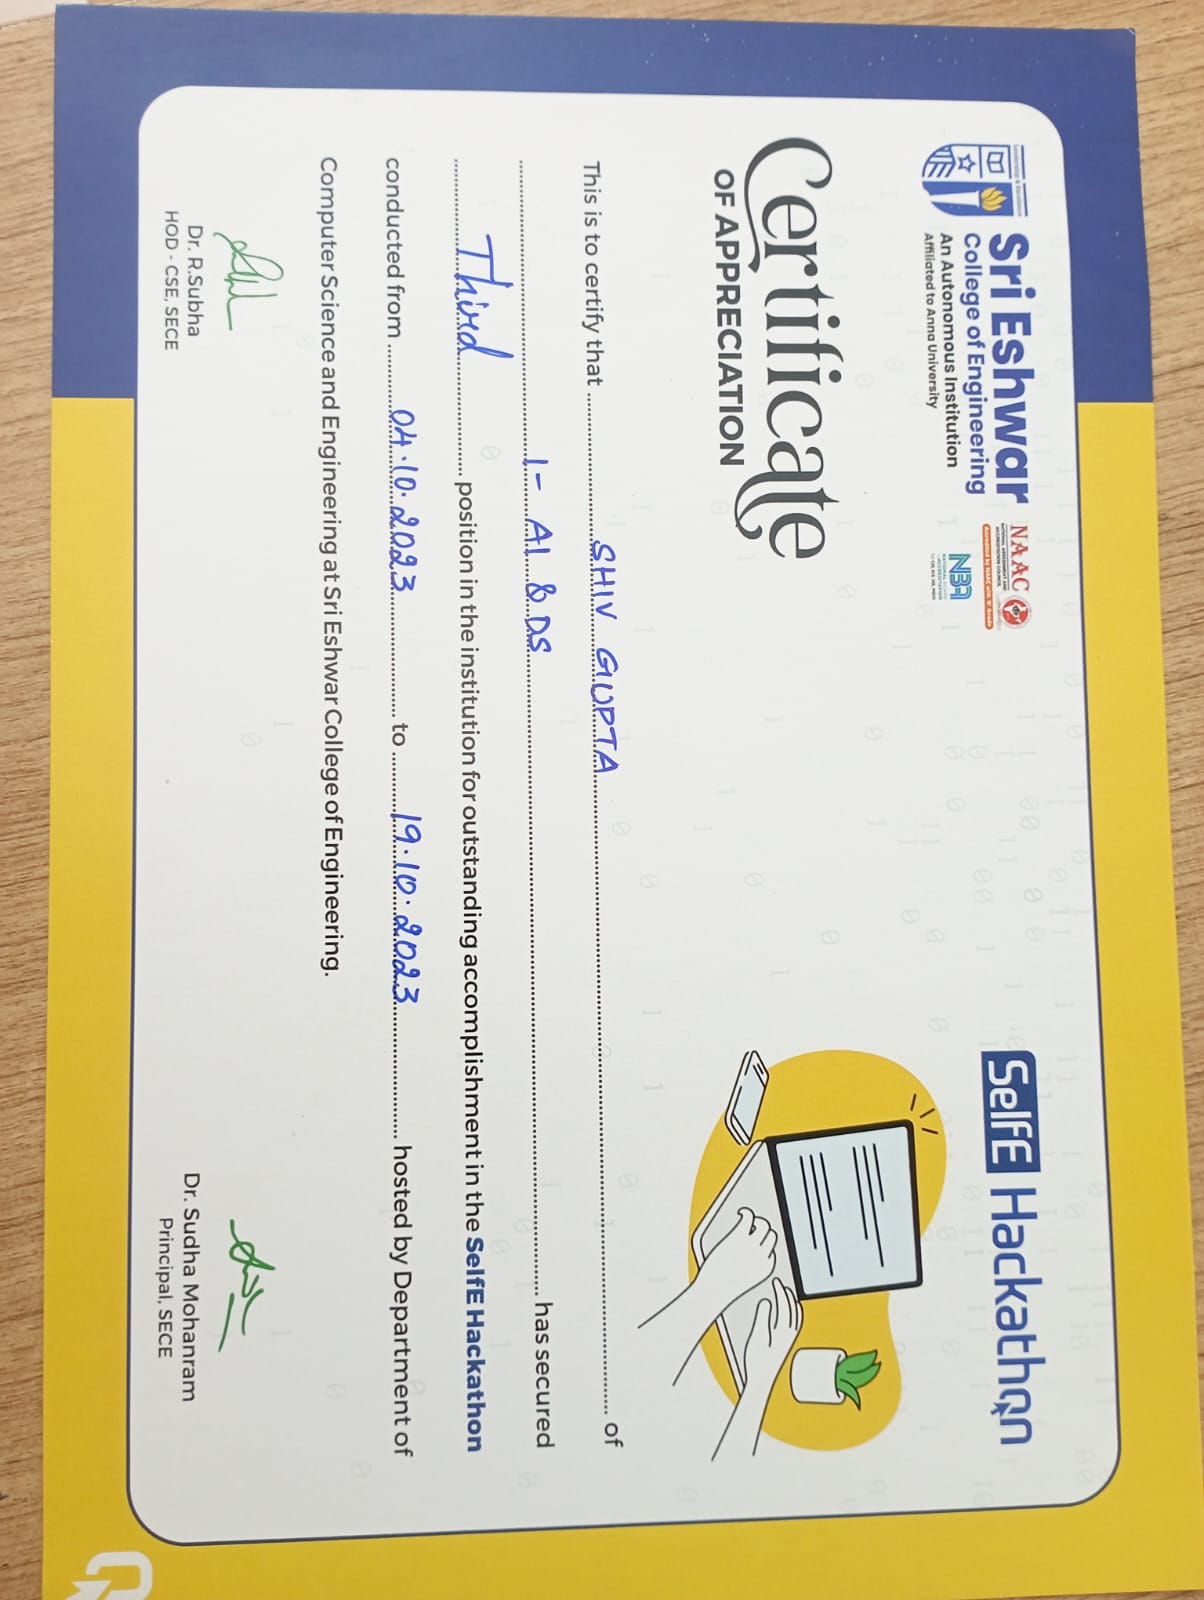 Leadership & Excellence
Sri Eshwar
College of Engineering
An Autonomous Institution
Affiliated to Anna University
NAAC
NATIONAL ASSESSMENT AND
ACCREDITATION COUNCIL
NBA
NATIONAL BOARD
of ACCREDITATION
SelfE Hackathon
Certificate
OF APPRECIATION
This is to certify that SHIV GUPTA of
I - AI & DS has secured
Third position in the institution for outstanding accomplishment in the SelfE Hackathon
conducted from 04.10.2023 to 19.10.2023 hosted by Department of
Computer Science and Engineering at Sri Eshwar College of Engineering.
Dr. R.Subha
HOD - CSE, SECE
Dr. Sudha Mohanram
Principal, SECE